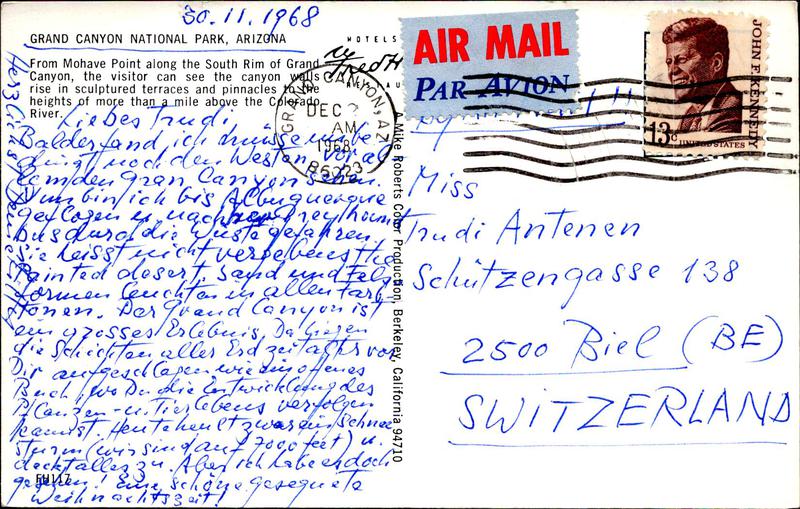 30.11.1968
GRAND CANYON NATIONAL PARK, ARIZONA
From Mohave Point along the South Rim of Grand
Canyon, the visitor can see the canyon walls
rise in sculptured terraces and pinnacles to the
heights of more than a mile above the Colorado
River.
HOTELS
via Fred H
AIR MAIL
PAR AVION
GRAND CANYON, AZ
DEC
AM
1968
86023
JOHN F. KENNEDY
13c
UNITED STATES
Liebes Trudi,
Balder fand ich müsse unbe
dingt noch den Westen, vor al
lem den Gran Canyon sehen.
Nun bin ich bis Albuquerque
geflogen u. nachher Greyhound
bus durch die Wüste gefahren,
sie heisst nicht vergebens the
Painted desert, Sand und Fels
formen leuchten in allen Farb
tönen. Der Grand Canyon ist
ein grosses Erlebnis. Da liegen
die Schichten aller Erdzeitalter vor
Dir aufgeschlagen wie ein offenes
Buch, wo Du die Entwicklung des
Pflanzen- u. Tierlebens verfolgen
kannst. Heute heult zwar ein Schnee
sturm (wir sind auf 7000 feet) u.
deckt alles zu. Aber ich habe es doch
gesehen! Eine schöne gesegnete
Weihnachtszeit!
Herzlichst Deine
FH117
A Mike Roberts Color Production, Berkeley, California 94710
Miss
Trudi Antenen
Schützengasse 138
2500 Biel (BE)
SWITZERLAND